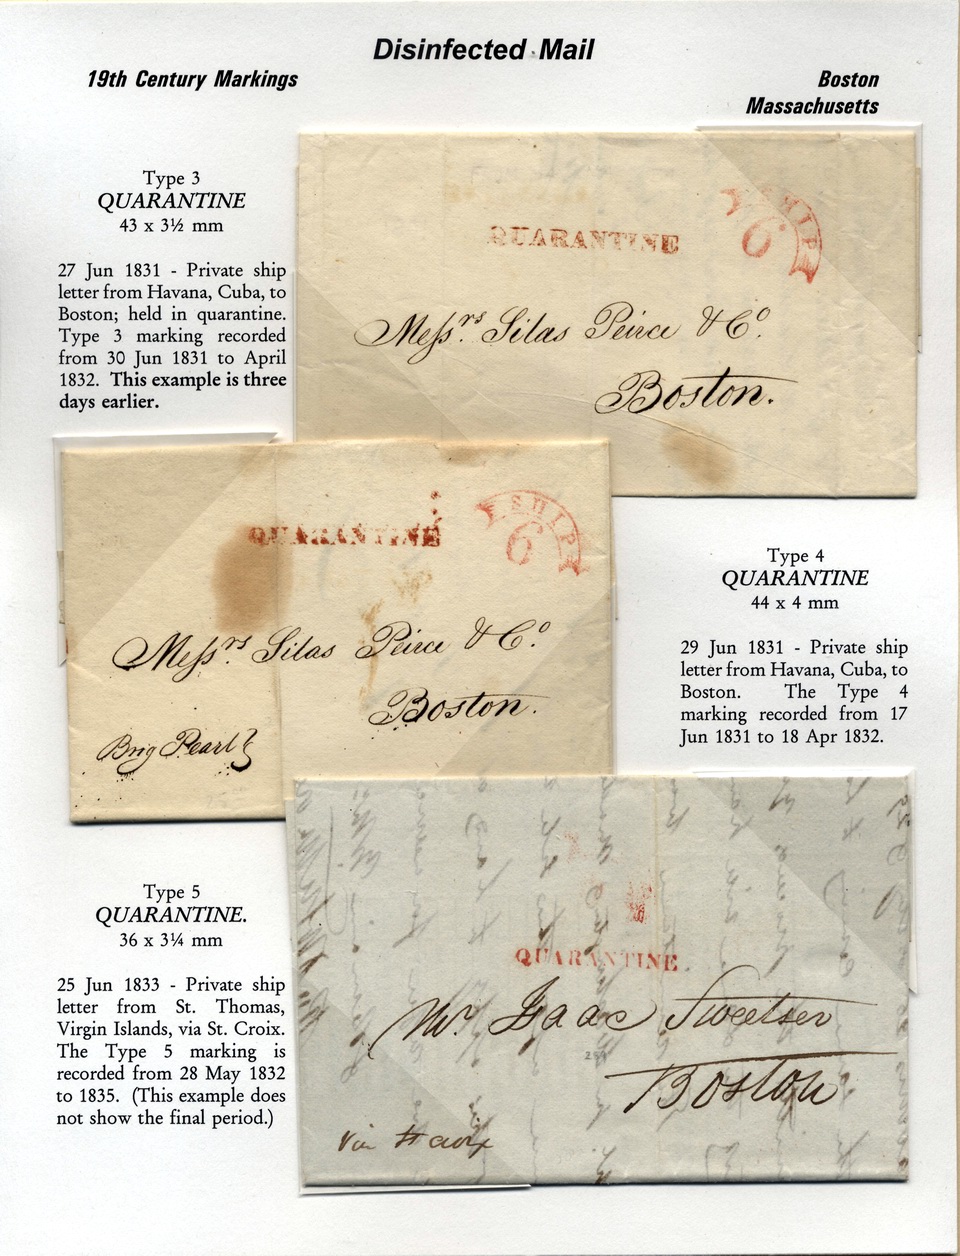 Disinfected Mail
19th Century Markings
Boston
Massachusetts
Type 3
QUARANTINE
43 x 3½ mm
27 Jun 1831 - Private ship
letter from Havana, Cuba, to
Boston; held in quarantine.
Type 3 marking recorded
from 30 Jun 1831 to April
1832. This example is three
days earlier.
QUARANTINE
SHIP
6
Messrs. Silas Peirce & Co.
Boston.
QUARANTINE
SHIP
6
Messrs. Silas Peirce & Co.
Boston.
Brig Pearl
Type 4
QUARANTINE
44 x 4 mm
29 Jun 1831 - Private ship
letter from Havana, Cuba, to
Boston. The Type 4
marking recorded from 17
Jun 1831 to 18 Apr 1832.
Type 5
QUARANTINE.
36 x 3¼ mm
25 Jun 1833 - Private ship
letter from St. Thomas,
Virgin Islands, via St. Croix.
The Type 5 marking is
recorded from 28 May 1832
to 1835. (This example does
not show the final period.)
QUARANTINE.
Mr. Isaac Sweetser
Boston
Via St croix